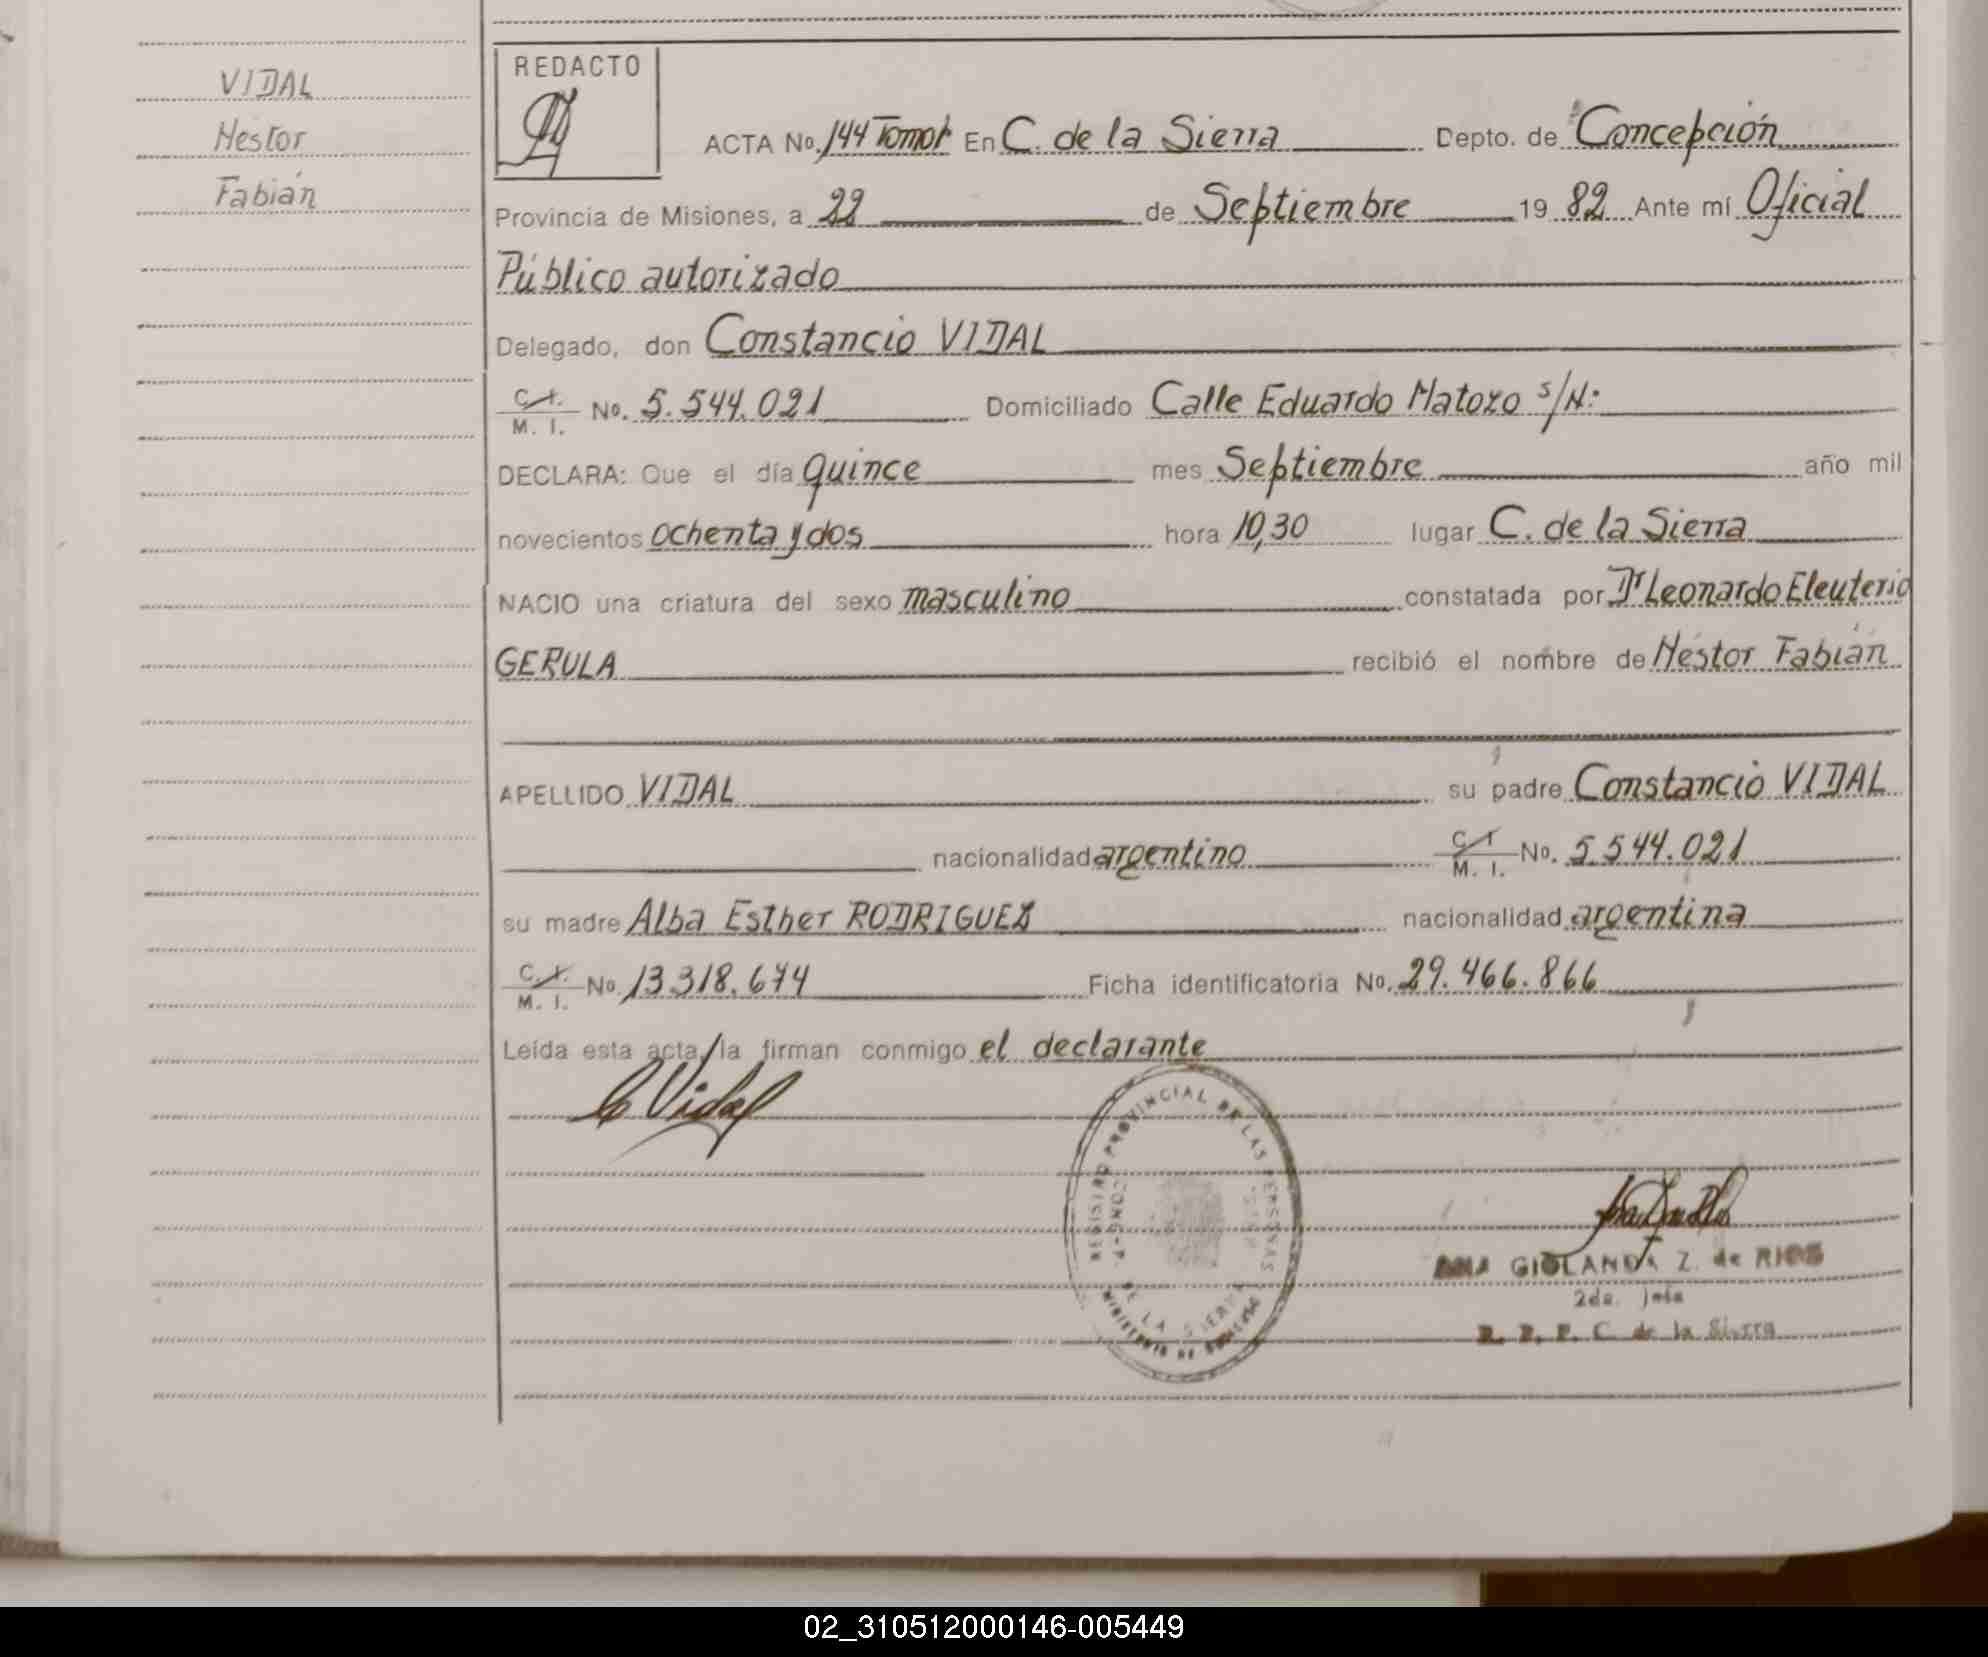 VIDAL
Néstor
Fabián
REDACTO
ACTA No. 144 Tomo I En C. de la Sierra Depto. de Concepción
Provincia de Misiones, a 22 de Septiembre 19 82 Ante mí Oficial
Público autorizado
Delegado, don Constancio VIDAL
C. I. / M. I. No. 5.544.021 Domiciliado Calle Eduardo Matozo s/N:
DECLARA: Que el día quince mes Septiembre año mil
novecientos ochenta y dos hora 10,30 lugar C. de la Sierra
NACIO una criatura del sexo masculino constatada por Dr Leonardo Eleuterio
GERULA recibió el nombre de Néstor Fabián
APELLIDO VIDAL su padre Constancio VIDAL
nacionalidad argentino C. I. / M. I. No. 5.544.021
su madre Alba Esther RODRIGUEZ nacionalidad argentina
C. I. / M. I. No. 13.318.674 Ficha identificatoria No. 29.466.866
Leída esta acta, la firman conmigo el declarante
C Vidal
REGISTRO PROVINCIAL DE LAS PERSONAS
DE LA SIERRA
MINISTERIO DE GOBIERNO
ANA GIOLANDA Z. de RIOS
2da. Jefa
R. P. P. C. de la Sierra
02_310512000146-005449